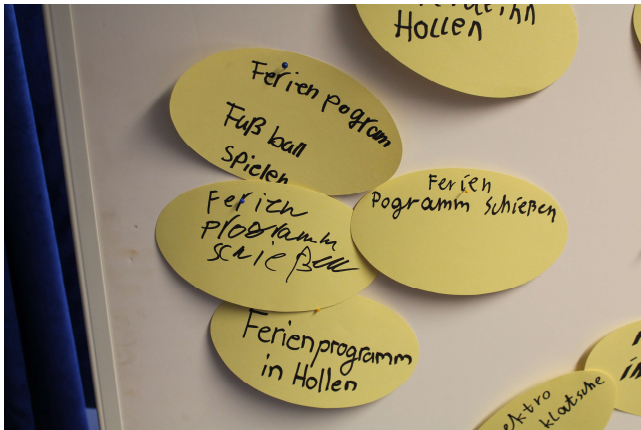 Hollen
Ferien pogram
Fuß ball
spielen
Ferien
programm
schießen
Ferien
Pogramm schießen
Ferienprogramm
in Hollen
ektro
klatsche